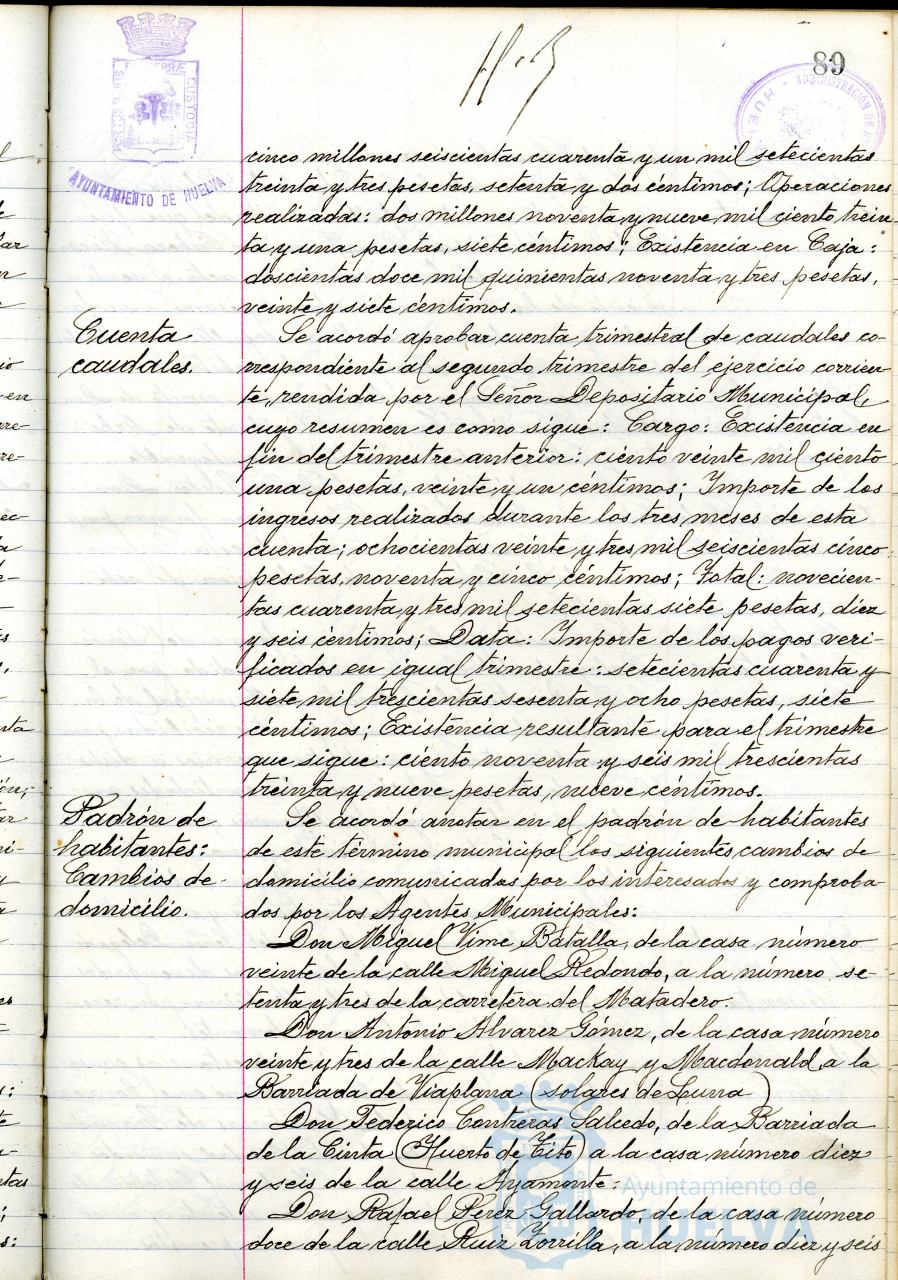 89
AYUNTAMIENTO DE HUELVA
cinco millones seiscientas cuarenta y un mil setecientas
treinta y tres pesetas, setenta y dos céntimos; Operaciones
realizadas: dos millones noventa y nueve mil ciento, trein-
ta y una pesetas, siete céntimos; Existencia en Caja:
doscientas doce mil quinientas noventa y tres pesetas,
veinte y siete céntimos.
Cuenta
caudales.
Se acordó aprobar cuenta trimestral de caudales co-
rrespondiente al segundo trimestre del ejercicio corrien-
te, rendida por el Señor Depositario Municipal,
cuyo resumen es como sigue: Cargo: Existencia en
fin del trimestre anterior: ciento veinte mil ciento
una pesetas, veinte y un céntimos; Importe de los
ingresos realizados durante los tres meses de esta
cuenta; ochocientas veinte y tres mil seiscientas cinco
pesetas, noventa y cinco céntimos; Total: novecien-
tas cuarenta y tres mil setecientas siete pesetas, diez
y seis céntimos; Data: Importe de los pagos veri-
ficados en igual trimestre: setecientas cuarenta y
siete mil trescientas sesenta y ocho pesetas, siete
céntimos; Existencia resultante para el trimestre
que sigue: ciento noventa y seis mil trescientas
treinta y nueve pesetas, nueve céntimos.
Padrón de
habitantes:
Cambios de
domicilio.
Se acordó anotar en el padrón de habitantes
de este término municipal los siguientes cambios de
domicilio comunicados por los interesados y comproba-
dos por los Agentes Municipales:
Don Miguel Vime Batalla, de la casa número
veinte de la calle Miguel Redondo, a la número se-
tenta y tres de la carretera del Matadero.
Don Antonio Alvarez Gómez, de la casa número
veinte y tres de la calle Mackay y Macdonald, a la
Barriada de Viaplana (solares de Luna)
Don Federico Contreras Salcedo, de la Barriada
de la Cinta (Huerto de Tito) a la casa número diez
y seis de la calle Ayamonte:
Don Rafael Pérez Gallardo, de la casa número
doce de la calle Ruiz Zorrilla, a la número diez y seis
Ayuntamiento de
HUELVA